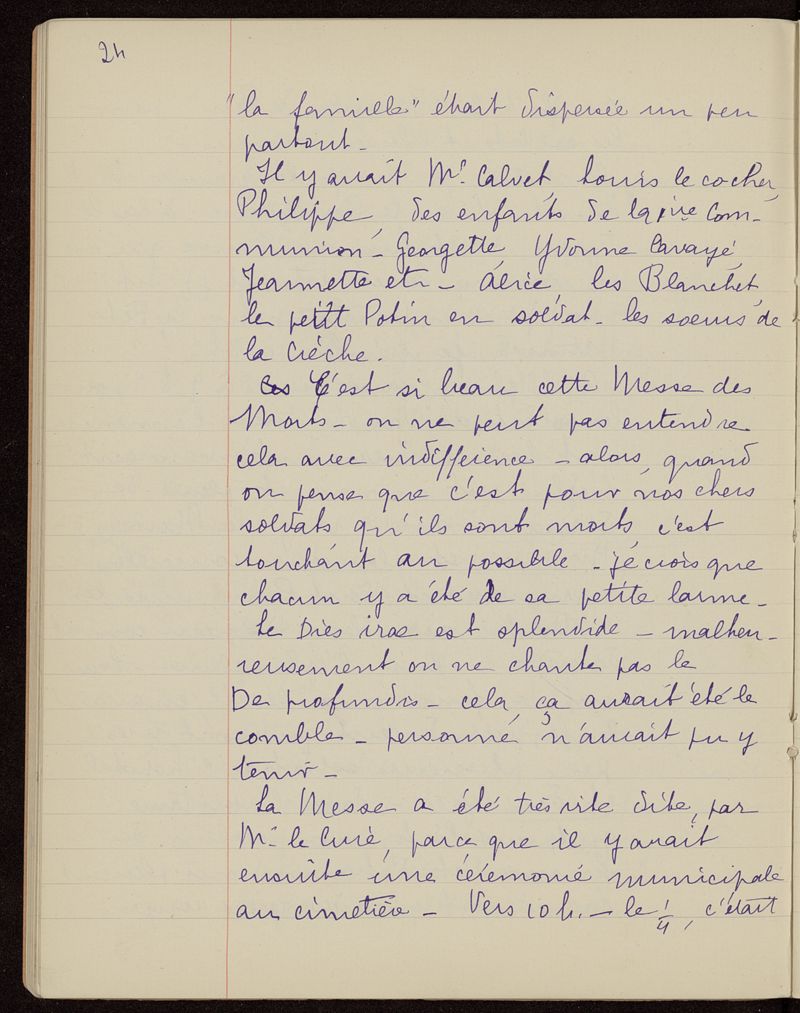 24
"la famille" était dispersée un peu
partout -
Il y avait Mr. Calvet, Louis le cocher,
Philippe, des enfants de la 1re Com-
munion - Georgette, Yvonne Cavayé,
Jeannette etc - Alice, les Blanchet,
le petit Potin en soldat - les soeurs de
la Crèche.
C'est si beau cette Messe des
Morts - on ne peut pas entendre
cela avec indifférence - alors, quand
on pense que c'est pour nos chers
soldats qu'ils sont morts, c'est
touchant au possible - je crois que
chacun y a été de sa petite larme -
Le Dies irae est splendide - malheu-
reusement on ne chante pas le
De profundis - cela, ça aurait été le
comble - personne n'aurait pu y
tenir -
La Messe a été très vite dite, par
Mr le Curé, parce que il y avait
ensuite une cérémonie municipale
au cimetière - Vers 10 h. - le 1/4, c'était